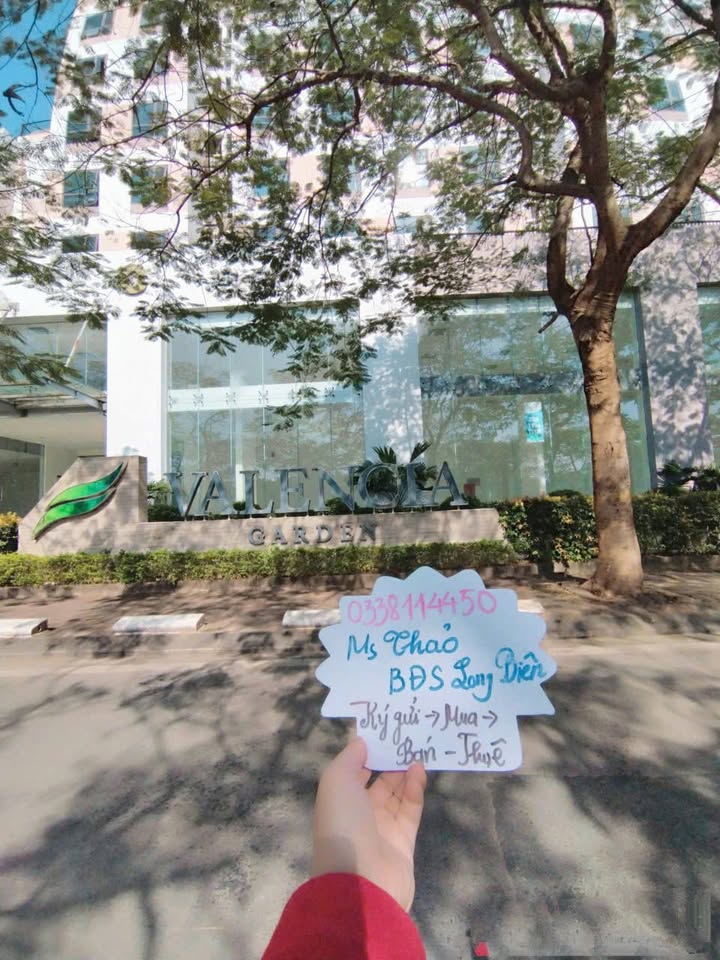 VALENCIA
GARDEN
0338114450
Ms Thảo
BĐS Long Biên
Ký gửi → Mua →
Bán - Thuê